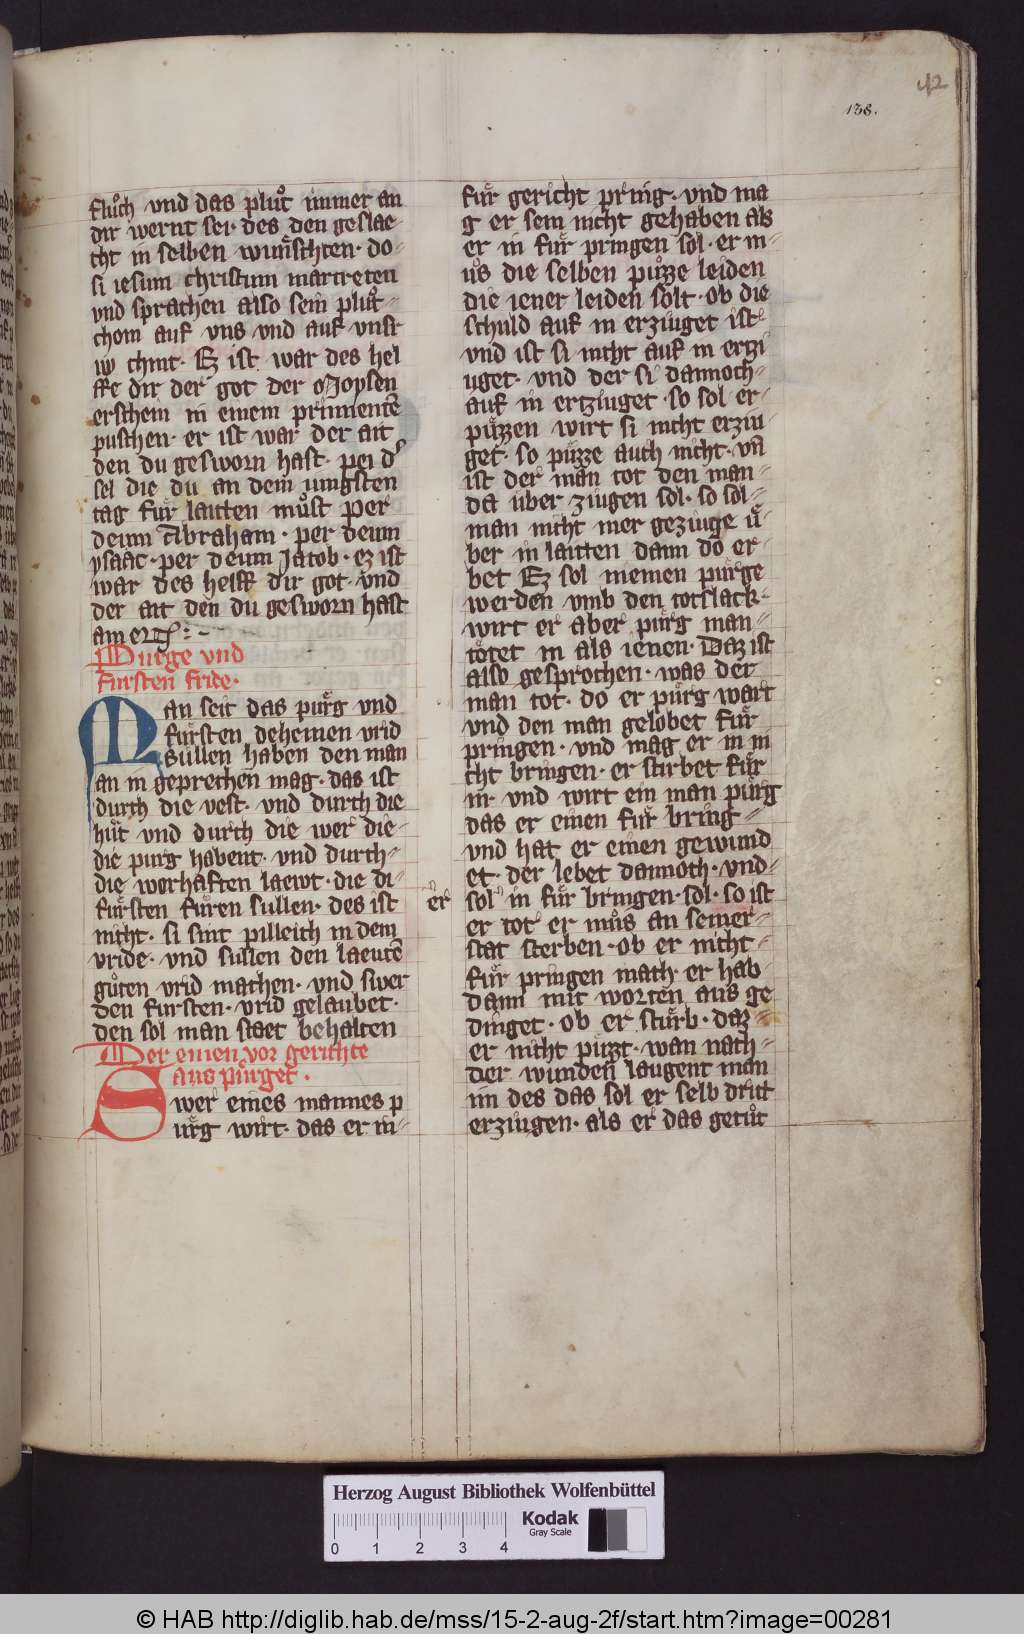 42
138.
fluͦch vnd das pluͦt immer an
dir wernt sei· des den geslae
cht in selben wunͤschten· do-
si iesum christum martreten
vnd sprachen also sein pluͦt-
chom auf vns vnd auf vnsr
iw chint· Ez ist war des hel
ffe dir der got der Moysen
erschein in einem prinnentē
puschen· er ist war der ait
den du gesworn hast· pei d'
sel die du an dem iungsten
tag fuͤr lauten muͦst per
deum Abraham· per deum
ysaac· per deum Jacob· ez ist
war des helff dir got· vnd
der ait den du gesworn hast
amen
Purge vnd
fursten fride·
Man seit das puͤrg vnd
fuͤrsten deheinen vrid
sullen haben den man
an in geprechen mag· das ist
durch die vest· vnd durch die
huͤt vnd durch die wer die-
die purg habent· vnd durch-
die werhaften laewt· die di-
fuͤrsten fuͤren sullen· des ist
nicht· si sint pilleich in dem
vride· vnd sullen den laeutē
guͦten vrid machen· vnd swer
den fursten· vrid gelaubet·
den sol man staet behalten
Der einen vor gerichte
aus puͤrget·
Swer eines mannes p
uͤrg wirt· das er in-
fuͤr gericht pring· vnd ma
g er sein nicht gehaben als
er in fuͤr pringen sol· er m-
uͦs die selben puͦzze leiden
die iener leiden solt· ob die
schuld auf in erziuget ist
vnd ist si nicht auf in ertzi
uget· vnd der si dannoch-
auf in ertziuget· so sol er-
puͤzzen wirt si nicht erziu-
get· so puͤzze auch nicht· vn̄
ist der man tot den man-
da uber ziugen sol· so sol-
man nicht mer geziuge uͤ-
ber in lauten dann do er-
bet Ez sol niemen purge
werden vmb den totslack-
wirt er aber puͤrg man-
toͤtet in als ienen· Daz ist
also gesprochen· was der
man tot· do er puͤrg wart
vnd den man gelobet fuͤr
pringen· vnd mag er in ni
cht bringen· er stirbet fuͤr
in· vnd wirt ein man puͤrg
das er einen fuͤr bring-
vnd hat er einen gewund
et· der lebet dannoch· vnd-
er sol in fuͤr bringen· sol· so ist
er tot er muͦs an seiner-
stat sterben· ob er nicht-
fuͤr pringen mach· er hab
dann mit worten aus ge
dinget· ob er stuͤrb· daz-
er nicht puͤzzt· wan nach-
der wunden laugent man
im des das sol er selb dritt
erziugen· als er das getuͦt
Herzog August Bibliothek Wolfenbüttel
0 1 2 3 4
Kodak
Gray Scale
© HAB http://diglib.hab.de/mss/15-2-aug-2f/start.htm?image=00281